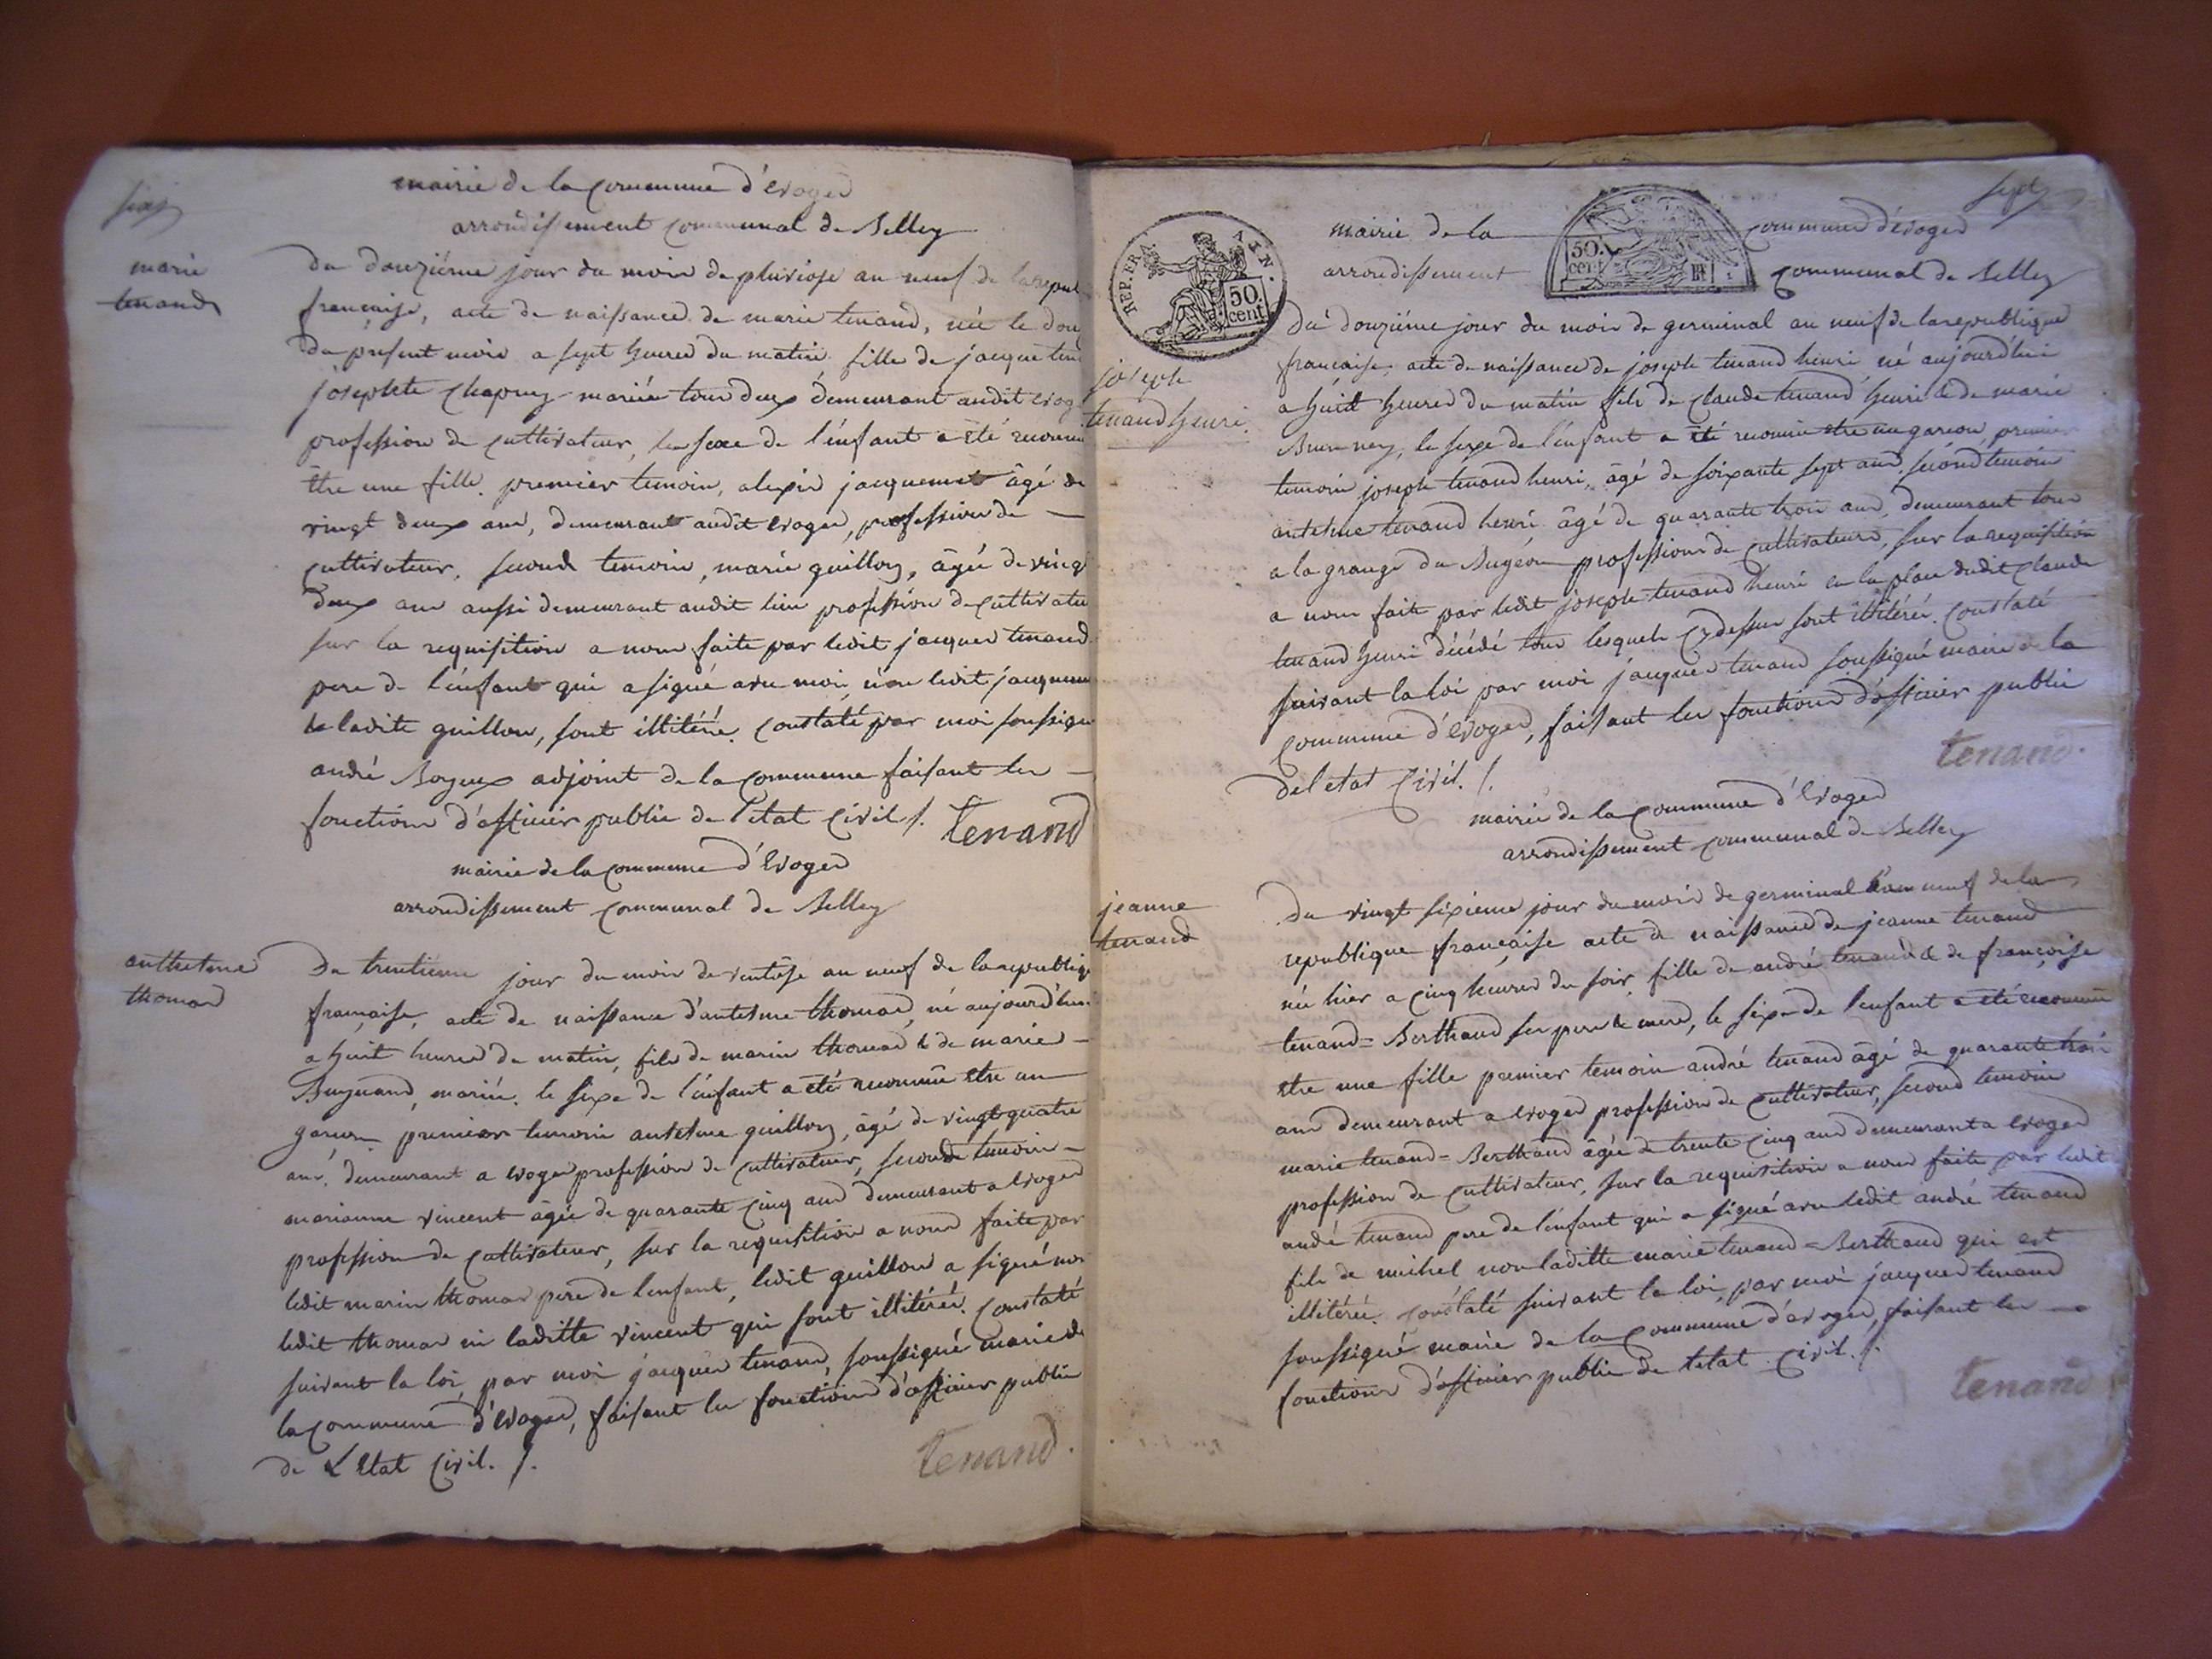 six
mairie de la commune d'Evoges
arrondissement communal de Belley
marie
tenand
Du douziéme jour du mois de pluviose an neuf de la repub
francaise, acte de naissance de marie tenand, née le dou
du présent mois a sept heures du matin fille de jacque ten
josephte Chapuy mariés tous deux demeurant audit Evog
profession de cultivateur, le sexe de l'énfant a été reconnu
être une fille. premier temoin, alexis jacquemet âgé de
vingt deux ans, demeurant audit Evoges, profession de
cultivateur, second temoin, marie guillon, âgée de vingt
deux ans aussi demeurant audit lieu profession de cultivateu
sur la requisition a nous faite par ledit jacques tenand
pere de l'énfant qui a signé avec moi, non ledit jacquem
& ladite guillon, sont illitérés. Constaté par moi soussigné
andré Boyeux adjoint de la commune faisant les
fonctions d'officier public de l'état Civil /. tenand
mairie de la commune d'Evoges
arrondissement communal de Belley
anthelme
thomas
Du trentieme jour du mois de ventôse an neuf de la republiq
française, acte de naissance d'antelme thomas, né aujourd'hui
a huit heures du matin, fils de marin thomas & de marie
mariés. le sexe de l'énfant a été reconnu etre un
garçon premier temoin antelme guillon, âgé de vingt quatre
ans, demeurant a Evoges profession de cultivateur, seconde temoin
marianne vincent âgée de quarante cinq ans demeurant a Evoges
profession de cultivateur, sur la requisition a nous faite par
ledit marin thomas pere de l'enfant, ledit guillon a signé non
ledit thomas ni laditte vincent qui sont illitérés. Constaté
suivant la loi, par moi jacques tenand, soussigné maire de
la commune d'Evoges, faisant les fonctions d'officier public
de L'Etat Civil. /.
tenand.
sept
REP. FRAN.
50. cent.
mairie de la commune d'évoges
50. cent
arrondissement communal de Belley
joseph
tenand henri.
Du douziéme jour du mois de germinal an neuf de la republique
française, acte de naissance de joseph tenand henri né aujourd'hui
a huit heures du matin fils de Claude tenand henri & de marie
le sexe de l'énfant a été reconnu etre un garcon, premier
temoin joseph tenand henri, âgé de soixante sept ans, sécond temoin
antelme tenand henri âgé de quarante trois ans, demeurant tous
a la grange du professions de cultivateurs, sur la requisition
a nous faite par ledit joseph tenand henri en la place dudit Claude
tenand henri décédé tous lesquels Cy dessus sont illitérés. Constaté
suivant la loi par moi jacques tenand soussigné maire de la
commune d'Evoges, faisant les fonctions d'officier public
de l'etat Civil. /.
tenand.
mairie de la commune d'Evoges
arrondissement communal de Belley
jeanne
tenand
Du vingt sixieme jour du mois de germinal an neuf de la
republique française acte de naissance de jeanne tenand
née hier a cinq heures du soir, fille de andré tenand & de françoise
tenand=Berthand ses pere & mere, le sexe de l'enfant a été reconnu
etre une fille premier temoin andré tenand âgé de quarante trois
ans demeurant a Evoges profession de cultivateur, second temoin
marie tenand=Berthand âgée de trente cinq ans demeurant a Evoges
profession de cultivateur, sur la requisition a nous faite par ledit
andré tenand pere de l'énfant qui a signé avec ledit andré tenand
fils de michel non laditte marie tenand=Berthand qui est
illitérée. constaté suivant la loi, par moi jacques tenand
soussigné maire de la commune d'evoges, faisant les
fonctions d'officier public de l'etat Civil. /.
tenand